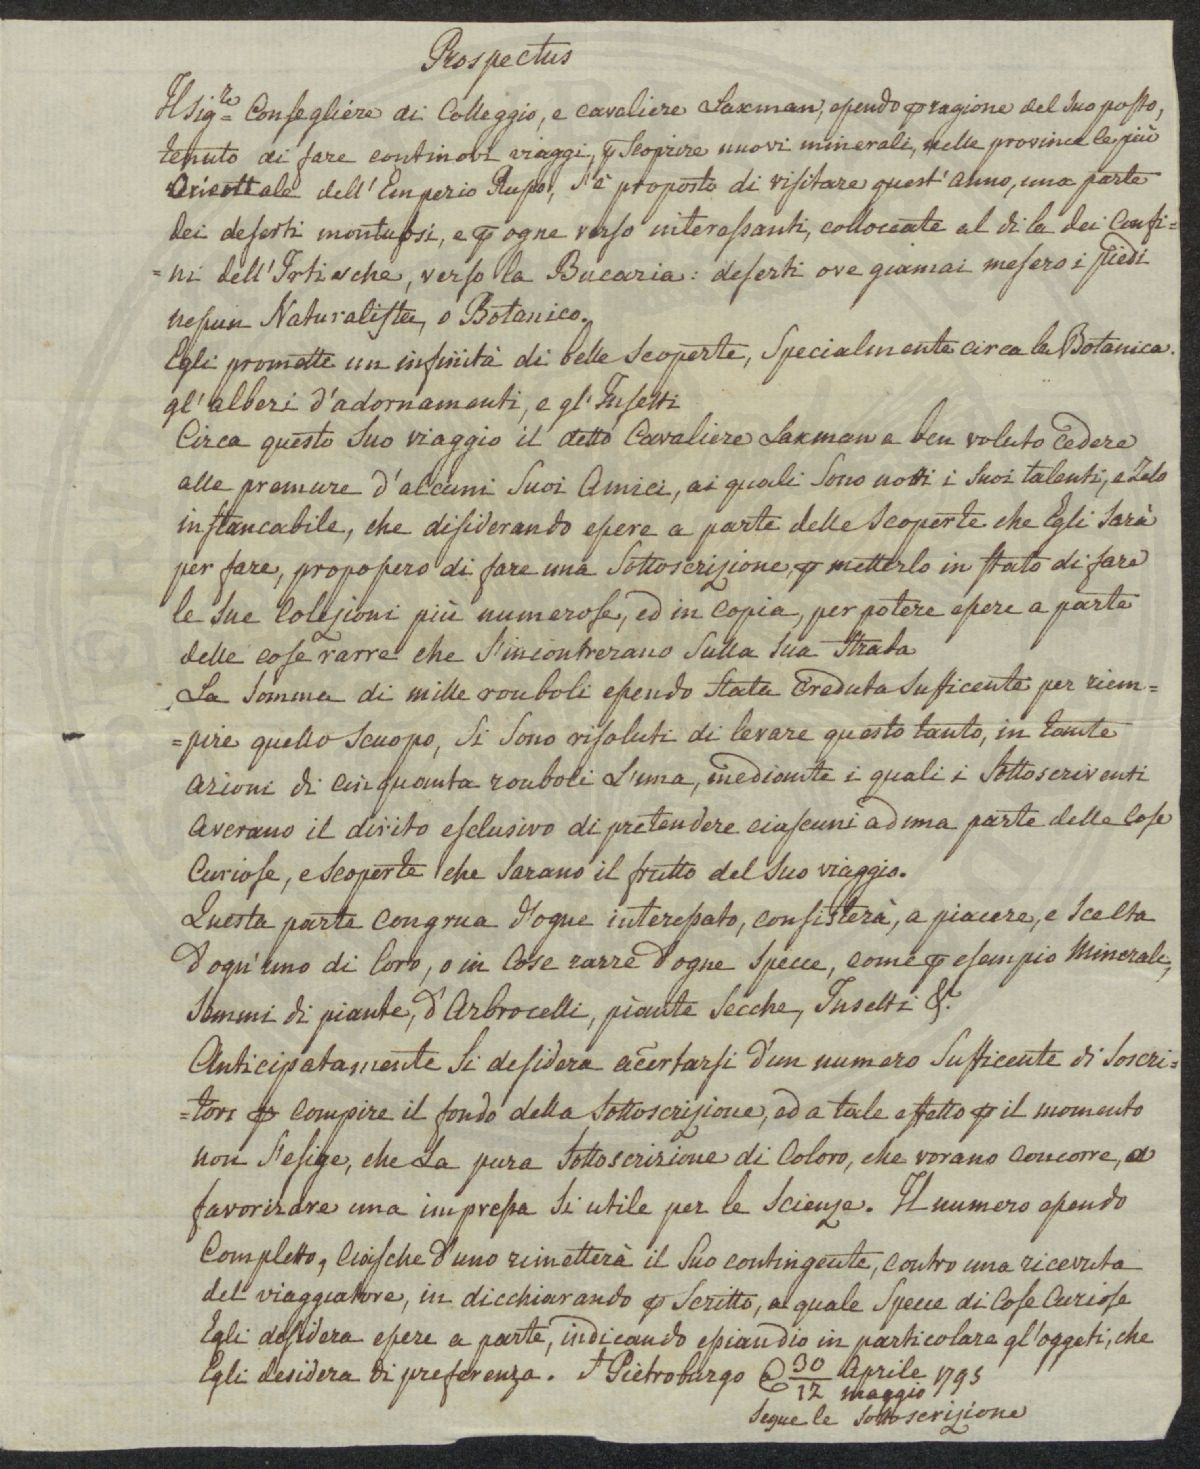 Prospectus
Il Sig.re Consegliere di Colleggio, e cavaliere Laxman, essendo per ragione del suo posto,
tenuto di fare continovi viaggi, per scoprire nuovi minerali, nelle provincie le più
Orientale dell'Emperio Russo, s'è proposto di visitare quest'anno, una parte
dei deserti montuosi, e per ogne verso interessanti, colloceate al di la dei Confi=
=ni dell'Irtische, verso la Bucaria: deserti ove giamai mesero i piedi
nessun Naturalista, o Botanico.
Egli promette un infinità di belle scoperte, specialmente circa la Botanica.
gl'alberi d'adornamenti, e gl'Insetti
Circa questo suo viaggio il detto Cavaliere Laxman a ben voluto cedere
alle premure d'alcuni suoi Amici, ai quali sono notti i suoi talenti, e Zelo
instancabile, che disiderando essere a parte delle scoperte che Egli sarà
per fare, propossero di fare una Sottoscrizione, per metterlo in stato di fare
le sue Colezioni più numerose, ed in Copia, per potere essere a parte
delle cose rarre che s'incontrerano sulla sua strada
La somma di mille rouboli essendo stata Creduta sufficente per riem=
=pire quello scuopo, si sono risoluti di levare questo tanto, in tante
azioni di cinquanta rouboli l'una, mediante i quali i sottoscriventi
averano il dirito esclusivo di pretendere ciascuni ad una parte delle Cose
Curiose, e scoperte che sarano il frutto del suo viaggio.
Questa parte congrua d'ogne interessato, consisterà, a piacere, e scelta
d'ogn'uno di loro, o in Cose rarre d'ogne specce, come per esempio Minerale,
semmi di piante, d'Arbrocelli, piante secche, Insetti &.
Anticipatamente si desidera acertarsi d'un numero sufficente di soscri=
=tori per compire il fondo della sottoscrizione, ed a tale effetto per il momento
non s'esige, che la pura sottoscrizione di Coloro, che vorano concorre, a
favorizare una impressa si utile per le scienze. Il numero essendo
Completto, ciasche d'uno rimetterà il suo contingente, contro una ricevuta
del viaggiatore, in dicchiarando per scritto, a quale specce di Cose Curiose
Egli desidera essere a parte, indicando essiandio in particolare gl'oggeti, che
Egli desidera di preferenza. St Pietroburgo 30/12 Aprile/maggio 1795
segue le sottoscrizione